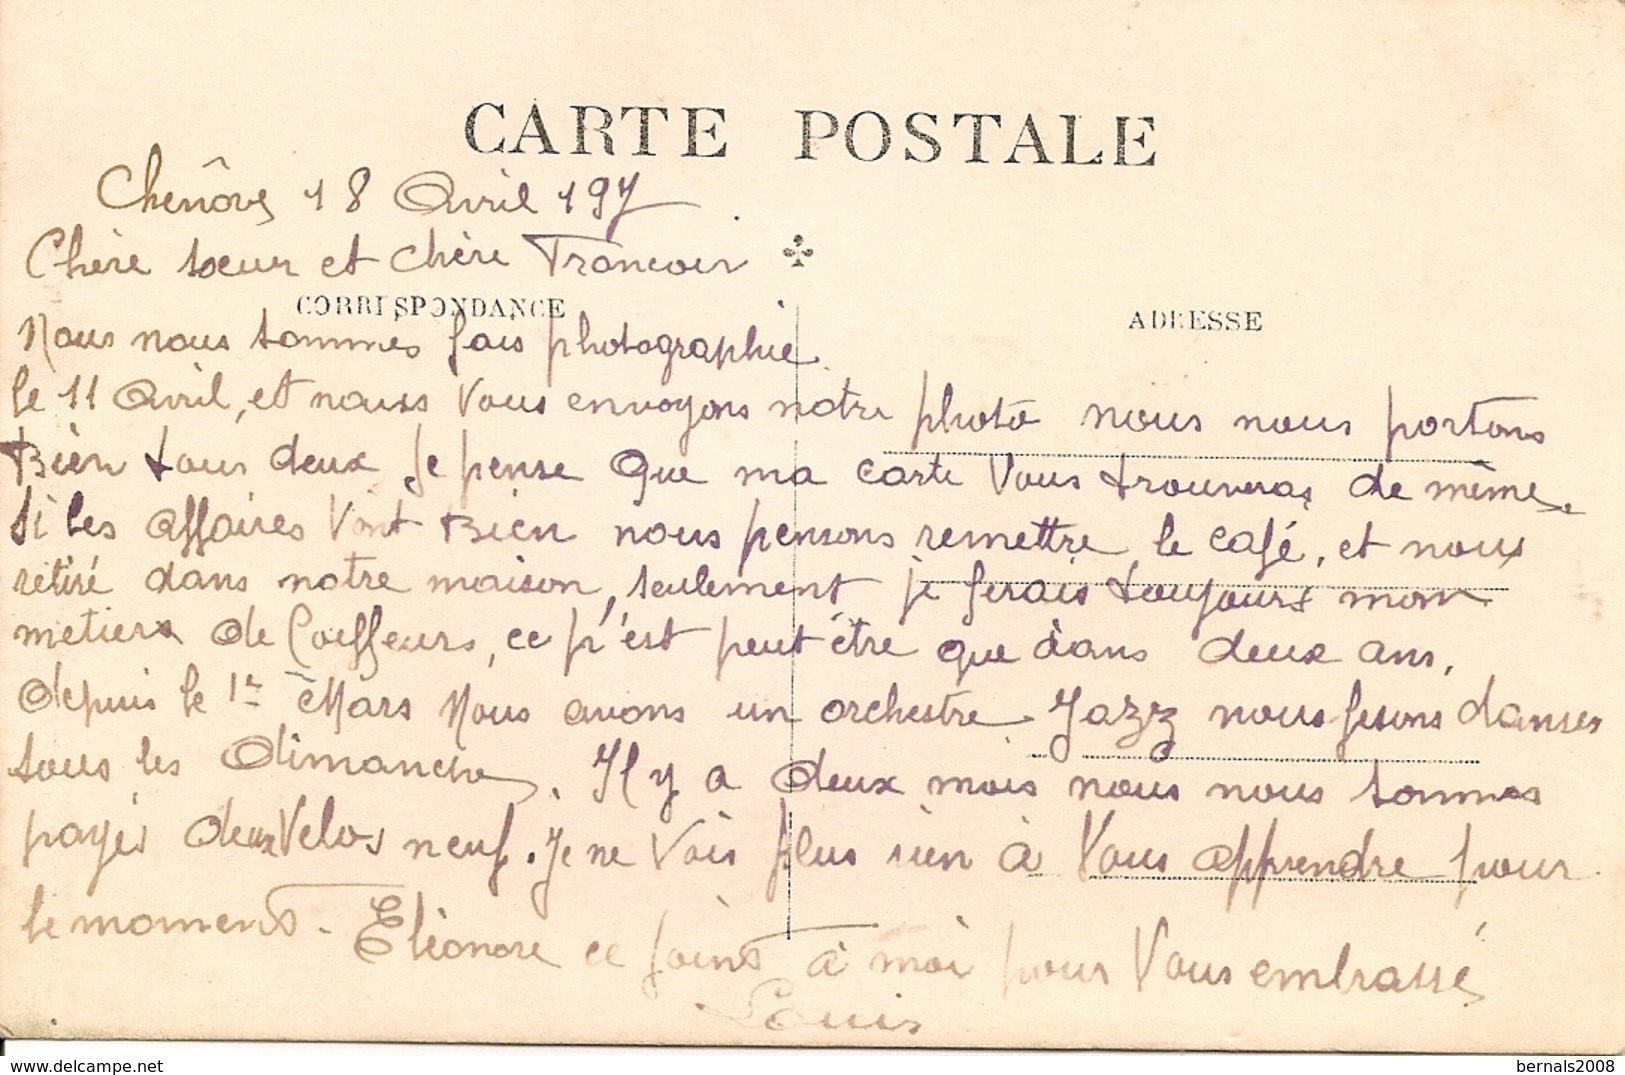 CARTE POSTALE
Chenôve 18 Avril 197
Chère soeur et chère Francoir
CORRISPONDANCE
ADRESSE
Nous nous sommes fais photographie
le 11 Avril, et nous Vous envoyons notre photo nous nous portons
Bien tous deux Je pense Que ma carte Vous trouveras de même
Si les affaires Vont Bien nous pensons remettre le café, et nous
retiré dans notre maison, seulement je ferais toujours mon
metiers de Coiffeurs, ce n'est peut être que dans deux ans,
depuis le 1er Mars Nous avons un orchestre Jazz nous fesons danser
tous les Dimanche. Il y a deux mois nous nous sommes
payés deux Velos neuf. Je ne Vois plus rien à Vous apprendre pour
le moment. Eléonore ce joint à moi pour Vous embrassé
Louis
delcampe.net
bernals2008